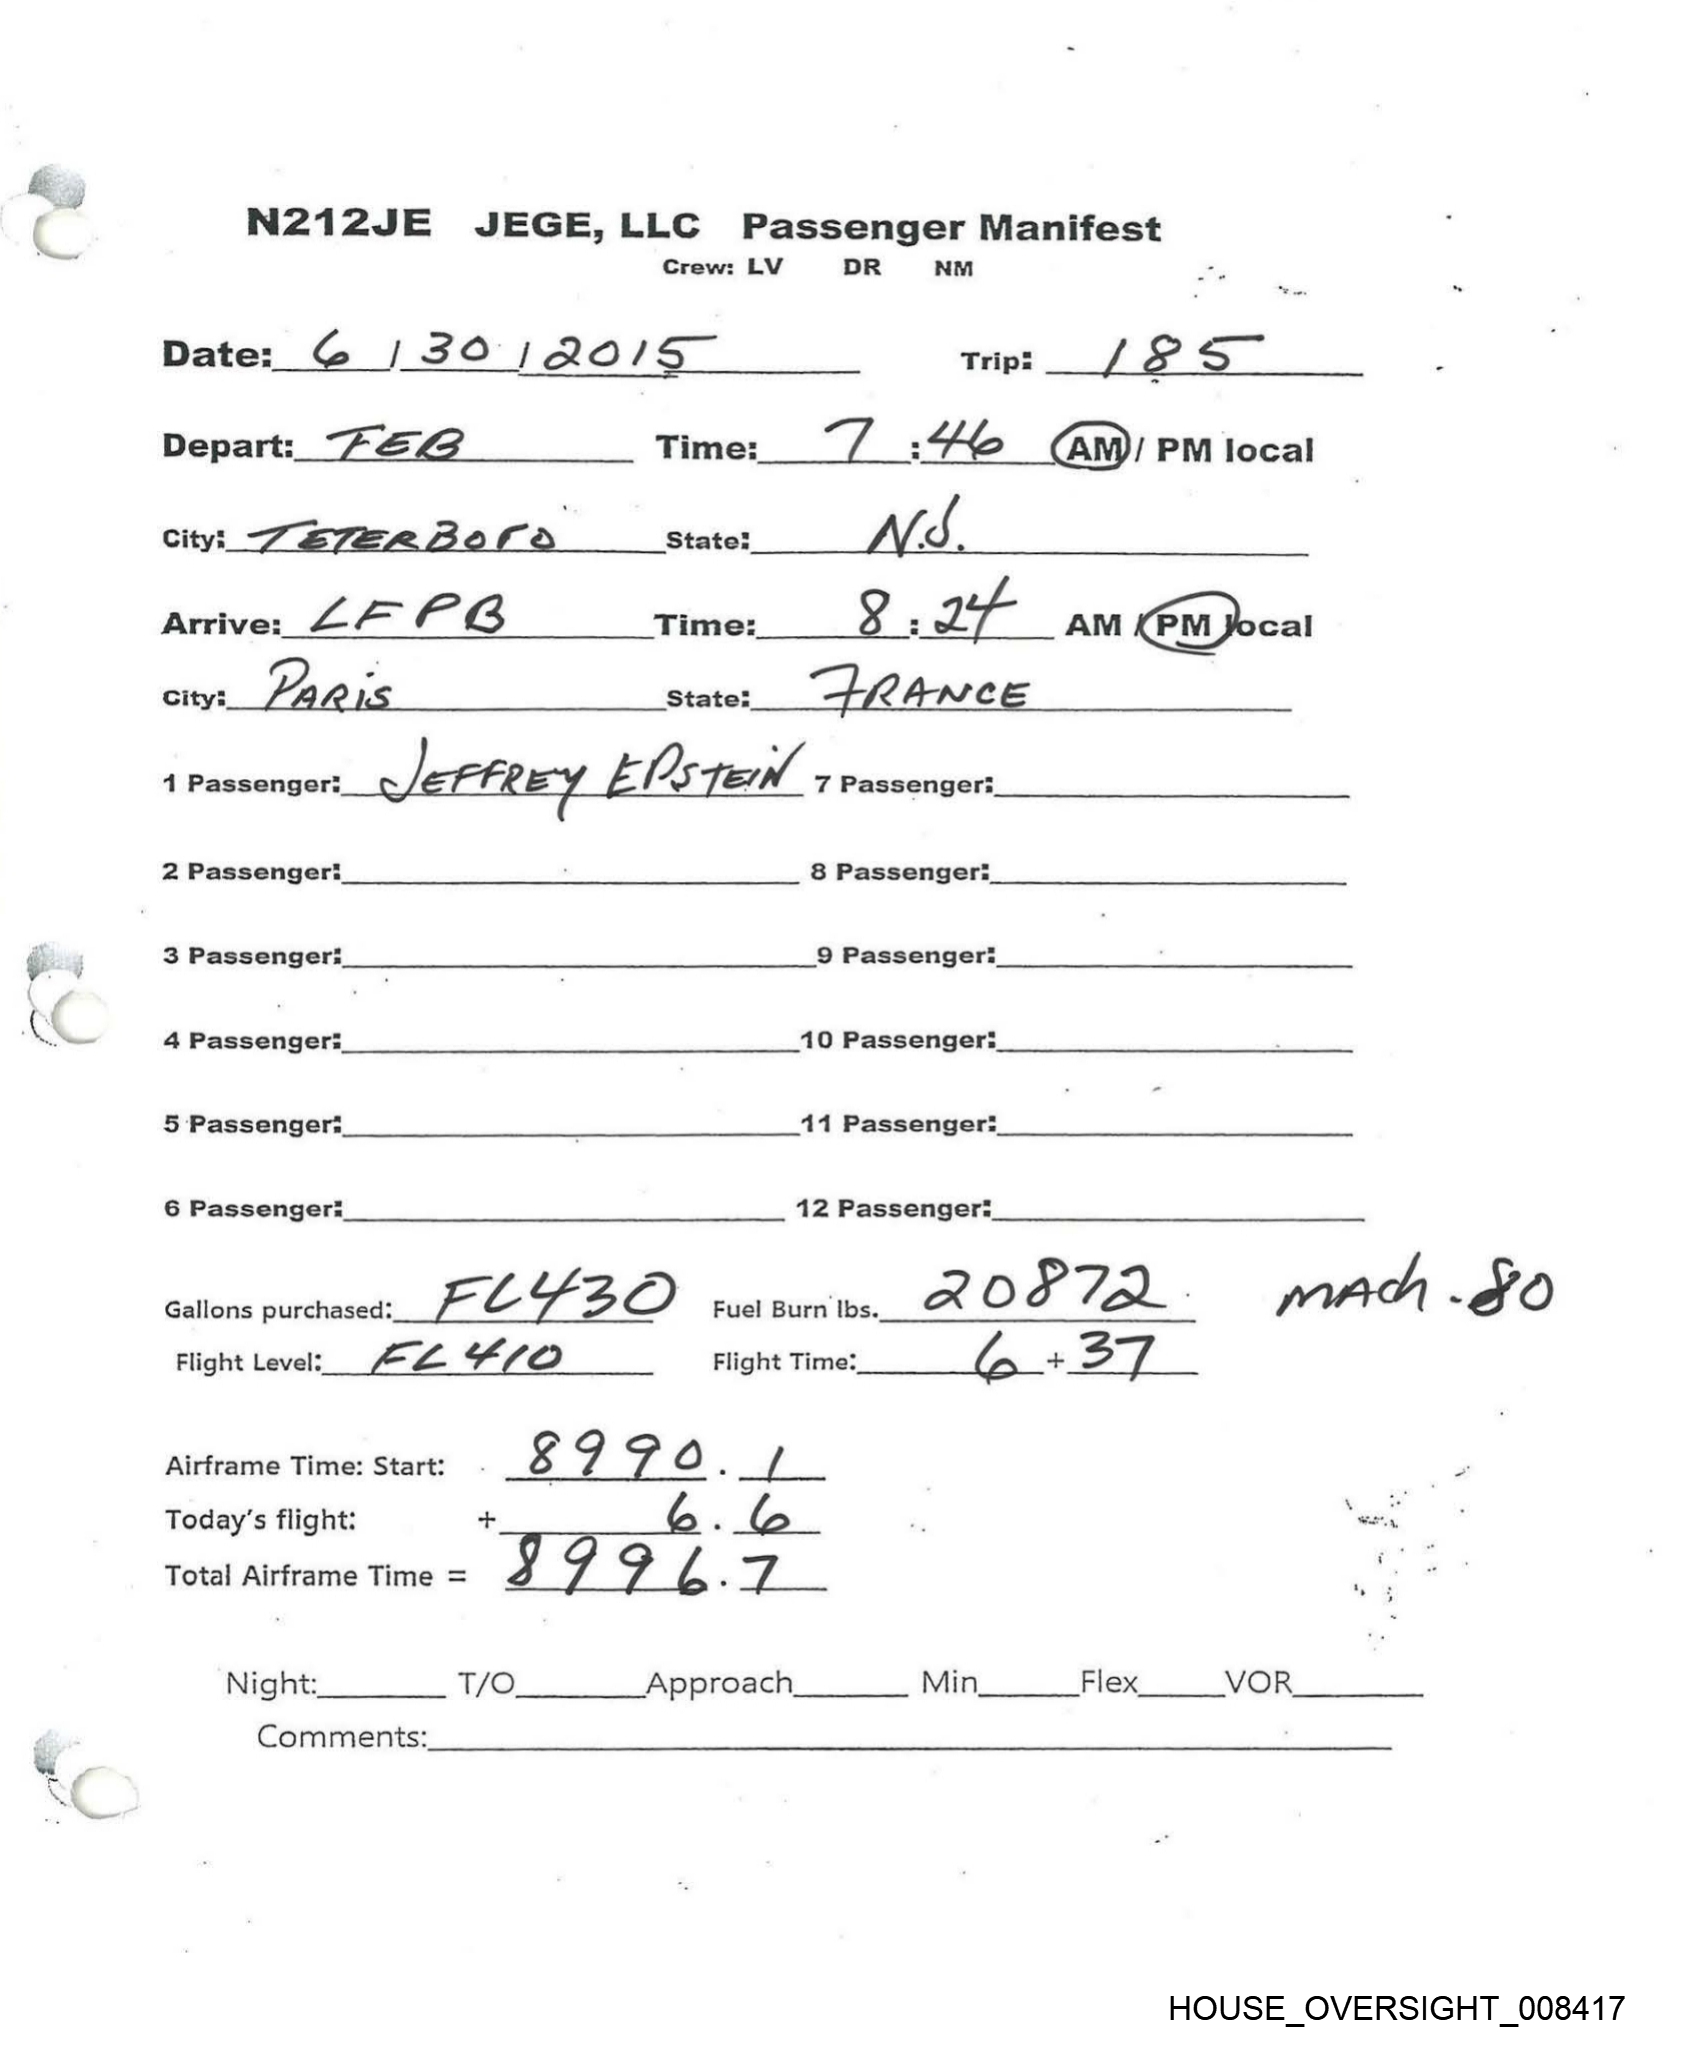 N212JE JEGE, LLC Passenger Manifest
Crew: LV DR NM
Date: 6 / 30 / 2015 Trip: 185
Depart: TEB Time: 7 : 46 AM / PM local
City: TETERBORO State: N.J.
Arrive: LFPB Time: 8 : 24 AM / PM local
City: PARIS State: FRANCE
1 Passenger: JEFFREY EPSTEIN 7 Passenger:
2 Passenger: 8 Passenger:
3 Passenger: 9 Passenger:
4 Passenger: 10 Passenger:
5 Passenger: 11 Passenger:
6 Passenger: 12 Passenger:
Gallons purchased: FL430 Fuel Burn lbs. 20872 MACH .80
Flight Level: FL410 Flight Time: 6 + 37
Airframe Time: Start: 8990 . 1
Today's flight: + 6 . 6
Total Airframe Time = 8996 . 7
Night: T/O Approach Min Flex VOR
Comments:
HOUSE_OVERSIGHT_008417